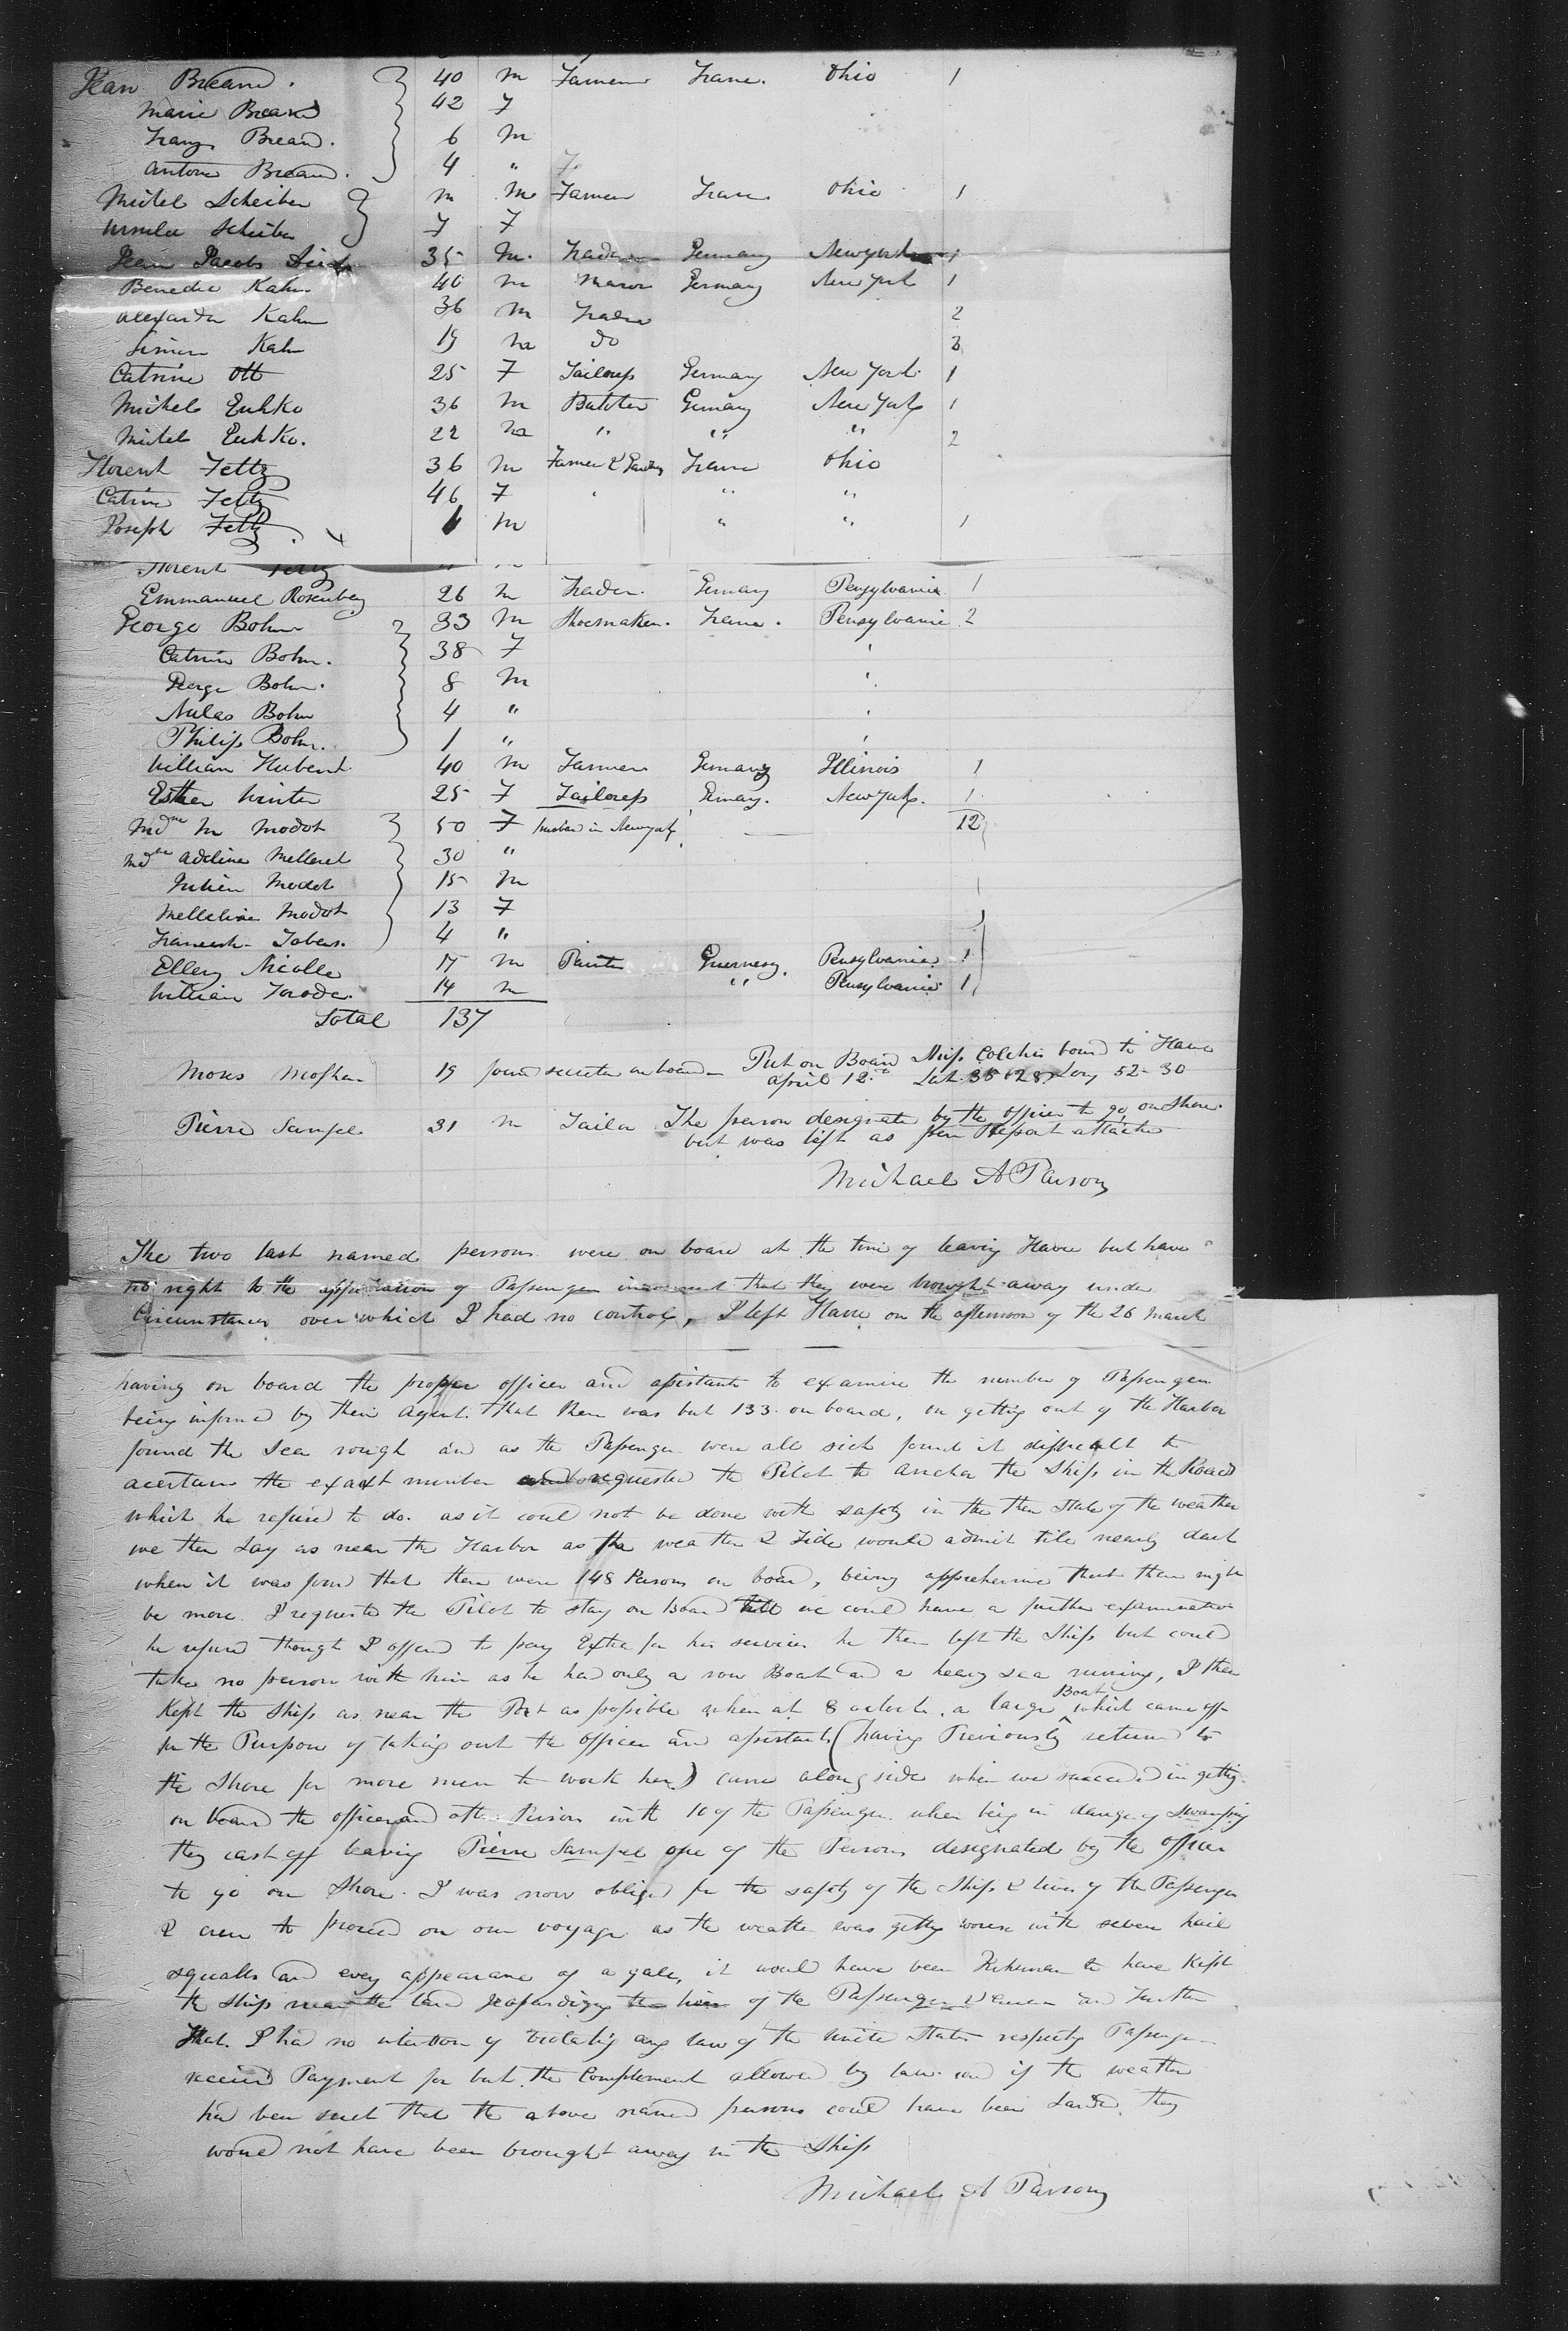 Jean Breand. 40 m Farmer France. Ohio 1
Marie Breand 42 F
Franz Breand. 6 m
Antone Breand. 4 "
Michel Scheiber m m Farmer France. Ohio 1
Ursulu Scheiber F F
Jean Jacob 35 m. Trader Germany Newyork 1
Benedic Kahn 40 m Mason Germany New York 1
Alexander Kahn 36 m Trader 2
Simon Kahn 19 m do 3
Catrine Ott 25 F Tailoress Germany New York 1
Michel Euhko 36 m Butcher Germany New York 1
Michel Euhko. 22 m " " " 2
Florent Fetty 36 m Farmer & France Ohio
Catrine Fetty 46 F " " "
Joseph Fetty m " " 1
Florent Fetty " m
Emmanuel Rosenberg 26 m Trader. Germany Pensylvania 1
George Bohn 33 m Shoemaker. France. Pensylvania 2
Catrine Bohn. 38 F "
George Bohn. 8 m "
Nulas Bohn 4 " "
Philip Bohn. 1 " "
William Hubert. 40 m Farmer Germany Illinois 1
Esther Winter 25 F Tailoress Germany. New York. 1
Mdme M Modot 50 F husband in Newyork 12
Mdme Adeline Melleret 30 "
Julien Modot 15 m
Mellelise Modot 13 F
4 "
Ellery Nicolle 17 m Painter Guernesey. Pensylvania 1
William Torode. 14 m " Pensylvania 1
Total 137
Mons 19 found secreted on board Put on Board Ship Colchis bound to Havre
April 12th Lat. 38 (28) Long 52-30
Pierre Sampel 31 m Tailor The person designated by the officer to go on Shore.
but was left as per Report attached
Michael A Parsons
The two last named persons were on board at the time of leaving Havre but have
no right to the appellation of Passengers that they were brought away under
Circumstances over which I had no control, I left Havre on the afternoon of the 26 March
having on board the proper officer and assistants to examine the number of Passengers
being informed by their Agent. that there was but 133 on board, on getting out of the Harbor
found the Sea rough and as the Passengers were all sick found it difficult to
acertain the exact number and requested the Pilot to anchor the Ship in the Roads
which he refused to do. as it could not be done with safety in the then State of the weather
we then Lay as near the Harbor as the weather & Tide would admit till nearly dark
when it was found that there were 148 Persons on board, being apprehensive that there might
be more I requested the Pilot to stay on board till we could have a further examination
he refused though I offered to pay Extra for his services he then left the Ship but could
take no person with him as he had only a row Boat and a heavy sea running, I then
Kept the Ship as near the Port as possible when at 8 oclock, a large Boat which came off
for the Purpose of taking out the officer and assistants (having Previously returned to
the Shore for more men to work her) came along side when we succeeded in getting
on board the officer and other Persons with 10 of the Passengers when being in danger of Swamping
they cast off leaving Pierre Sampel one of the Persons designated by the officer
to go on Shore. I was now obliged for the safety of the Ship & lives of the Passengers
& crew to proceed on our voyage as the weather was getting worse with severe hail
squalls and every appearance of a gale, it would have been Inhuman to have Kept
the Ship near the land Jeopardizing the lives of the Passengers & Crew and Further
That. I had no intention of violating any law of the United States respecting Passengers
received Payment for but the Complement allowed by law and if the weather
had been such that the above named persons could have been Landed they
would not have been brought away in the Ship
Michael A Parsons